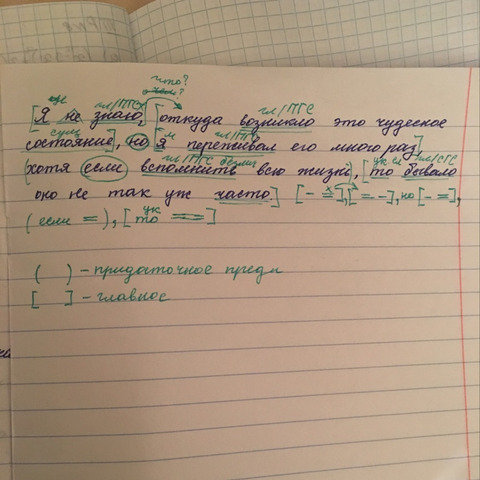 что?
м гл/ПГС гл/ПГС
[Я не знаю, [откуда возникло это чудесное
сущ м гл/ПГС
состояние], но я переживал его много раз],
гл/ПГС безлич ук м гл/СГС
(хотя если вспомнить всю жизнь), [то бывало
оно не так уж часто.] [- =], [= -], но [- =],
ук
(если =), [то =]
( ) - придаточное предл
[ ] - главное